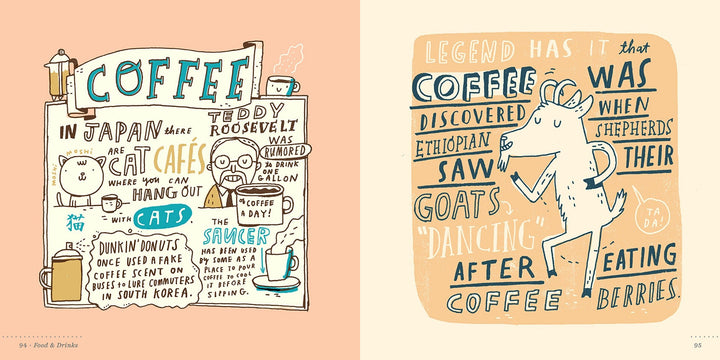 COFFEE
IN JAPAN there
ARE
CAT CAFÉS
WHERE YOU CAN
HANG OUT
WITH CATS.
MOSHI
MOSHI
猫
TEDDY
ROOSEVELT
WAS
RUMORED
TO DRINK
ONE
GALLON
of
COFFEE
A DAY!
THE
SAUCER
HAS BEEN USED
BY SOME AS A
PLACE TO POUR
COFFEE TO COOL
IT BEFORE
SIPPING.
DUNKIN' DONUTS
ONCE USED A FAKE
COFFEE SCENT ON
BUSES TO LURE COMMUTERS
IN SOUTH KOREA.
94 · Food & Drinks
LEGEND HAS IT that
COFFEE WAS
DISCOVERED WHEN
ETHIOPIAN SHEPHERDS
SAW THEIR
GOATS
"DANCING"
TA
DA!
AFTER EATING
COFFEE BERRIES.
95